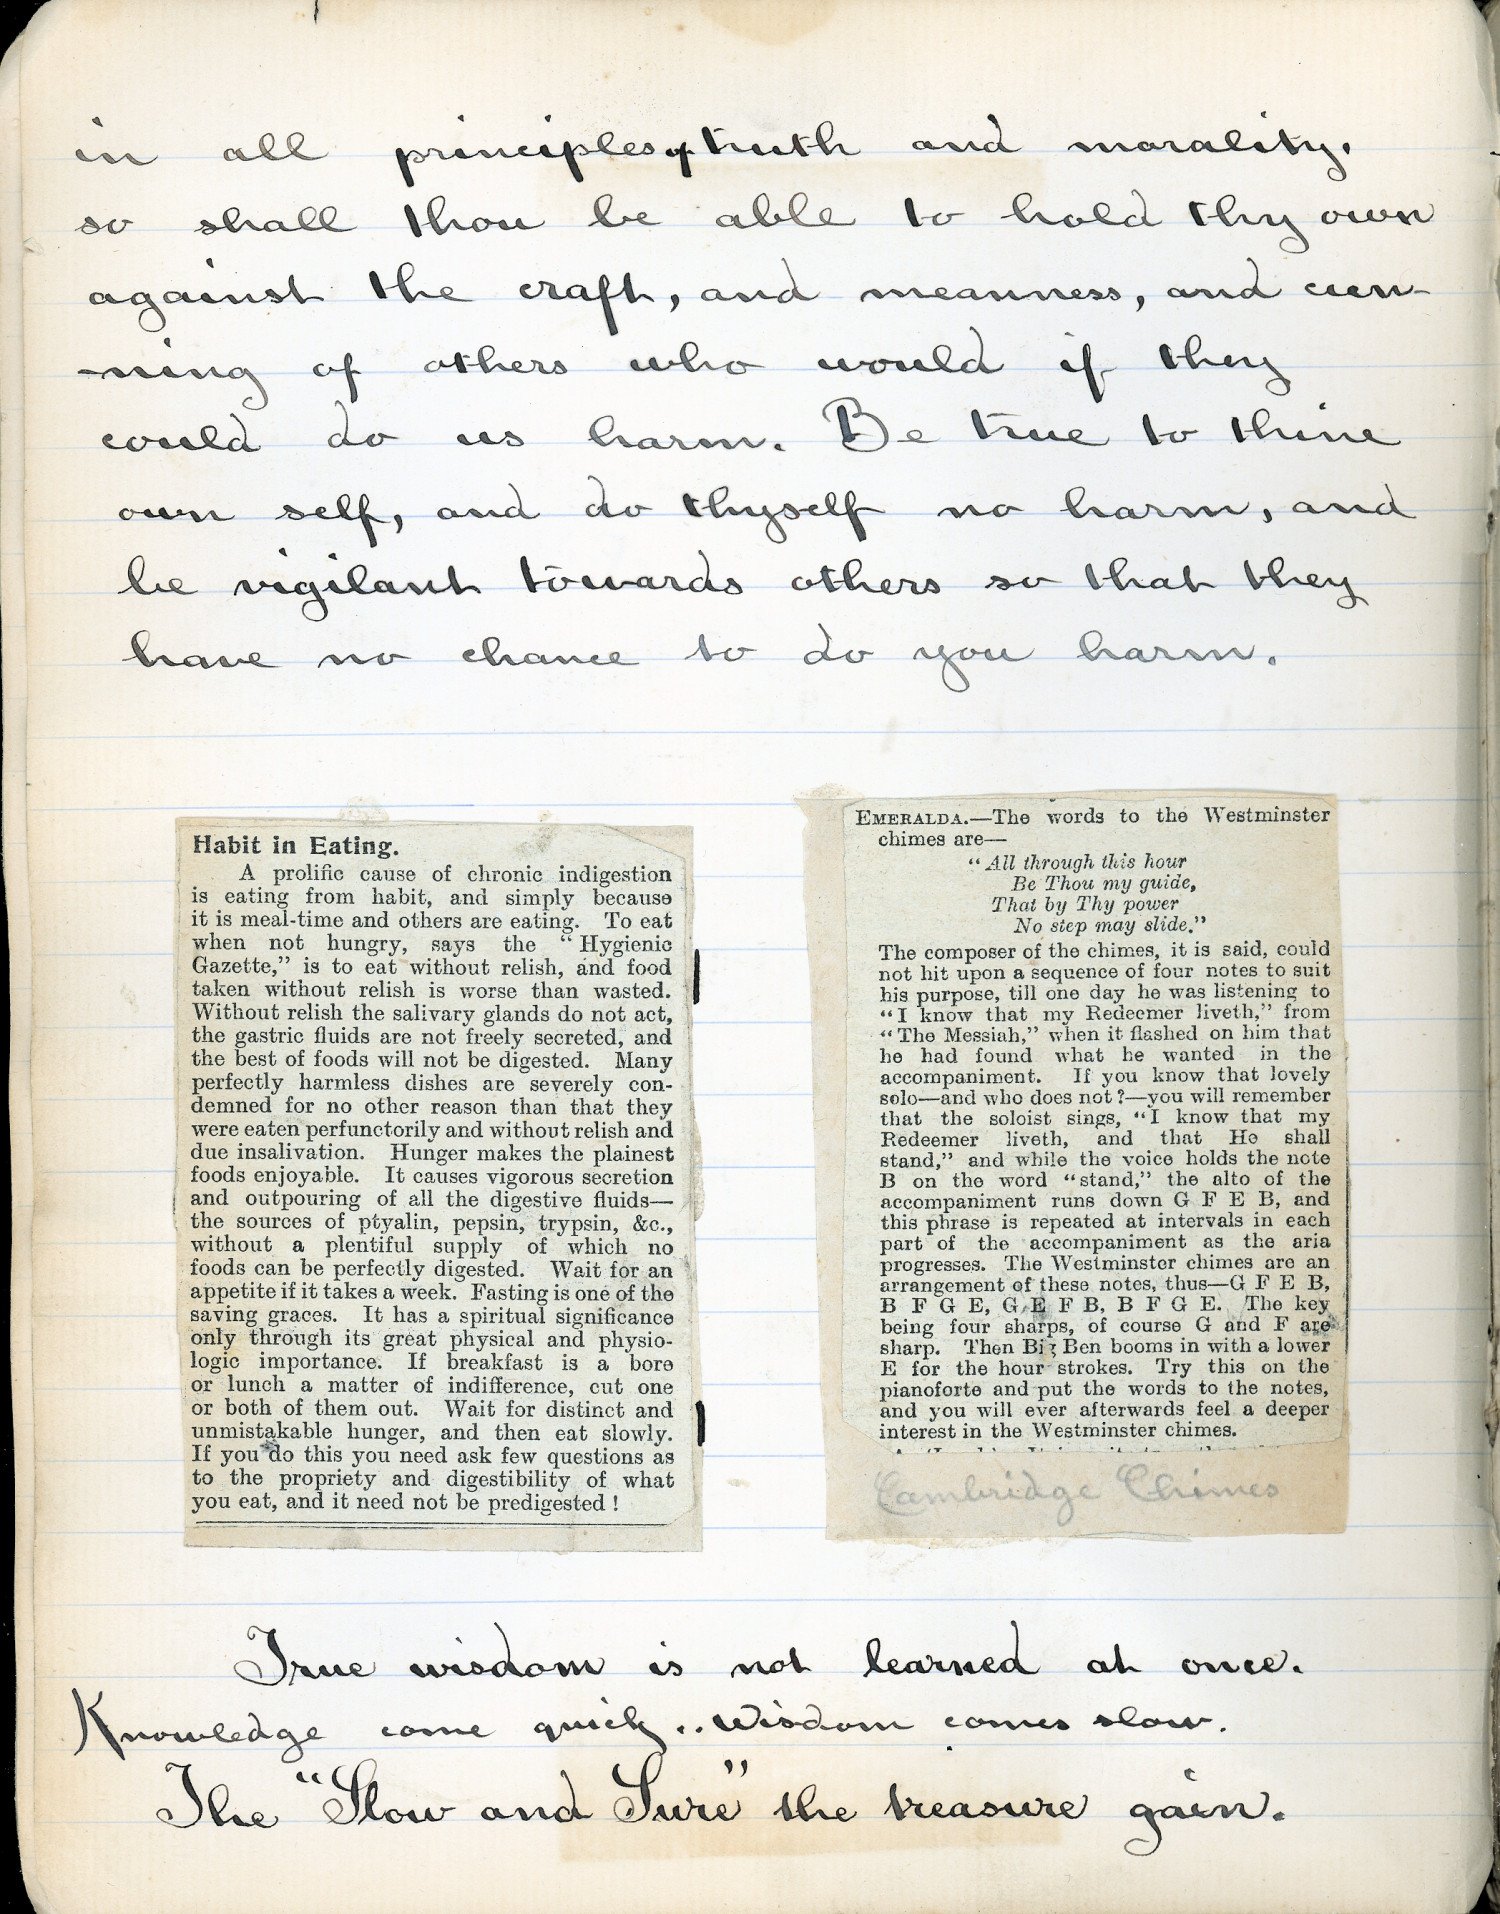 in all principles of truth and morality.
so shall thou be able to hold thy own
against the craft, and meanness, and cun-
-ning of others who would if they
could do us harm. Be true to thine
own self, and do thyself no harm, and
be vigilant towards others so that they
have no chance to do you harm.
Habit in Eating.
A prolific cause of chronic indigestion
is eating from habit, and simply because
it is meal-time and others are eating. To eat
when not hungry, says the "Hygienic
Gazette," is to eat without relish, and food
taken without relish is worse than wasted.
Without relish the salivary glands do not act,
the gastric fluids are not freely secreted, and
the best of foods will not be digested. Many
perfectly harmless dishes are severely con-
demned for no other reason than that they
were eaten perfunctorily and without relish and
due insalivation. Hunger makes the plainest
foods enjoyable. It causes vigorous secretion
and outpouring of all the digestive fluids—
the sources of ptyalin, pepsin, trypsin, &c.,
without a plentiful supply of which no
foods can be perfectly digested. Wait for an
appetite if it takes a week. Fasting is one of the
saving graces. It has a spiritual significance
only through its great physical and physio-
logic importance. If breakfast is a bore
or lunch a matter of indifference, cut one
or both of them out. Wait for distinct and
unmistakable hunger, and then eat slowly.
If you do this you need ask few questions as
to the propriety and digestibility of what
you eat, and it need not be predigested!
EMERALDA.—The words to the Westminster
chimes are—
"All through this hour
Be Thou my guide,
That by Thy power
No step may slide."
The composer of the chimes, it is said, could
not hit upon a sequence of four notes to suit
his purpose, till one day he was listening to
"I know that my Redeemer liveth," from
"The Messiah," when it flashed on him that
he had found what he wanted in the
accompaniment. If you know that lovely
solo—and who does not?—you will remember
that the soloist sings, "I know that my
Redeemer liveth, and that He shall
stand," and while the voice holds the note
B on the word "stand," the alto of the
accompaniment runs down G F E B, and
this phrase is repeated at intervals in each
part of the accompaniment as the aria
progresses. The Westminster chimes are an
arrangement of these notes, thus—G F E B,
B F G E, G E F B, B F G E. The key
being four sharps, of course G and F are
sharp. Then Big Ben booms in with a lower
E for the hour strokes. Try this on the
pianoforte and put the words to the notes,
and you will ever afterwards feel a deeper
interest in the Westminster chimes.
Cambridge Chimes
True wisdom is not learned at once.
Knowledge come quick.. Wisdom comes slow.
The "Slow and Sure" the treasure gain.